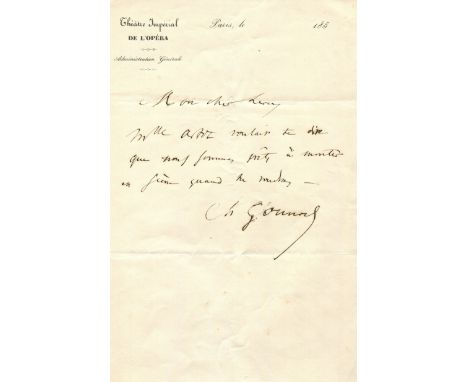 Théâtre Impérial Paris, le 185
DE L'OPÉRA
Administration Générale
Mon cher Leroy
Mlle Artôt voulait te dire
que nous sommes prêts à monter
en scène quand tu voudras —
Ch Gounod